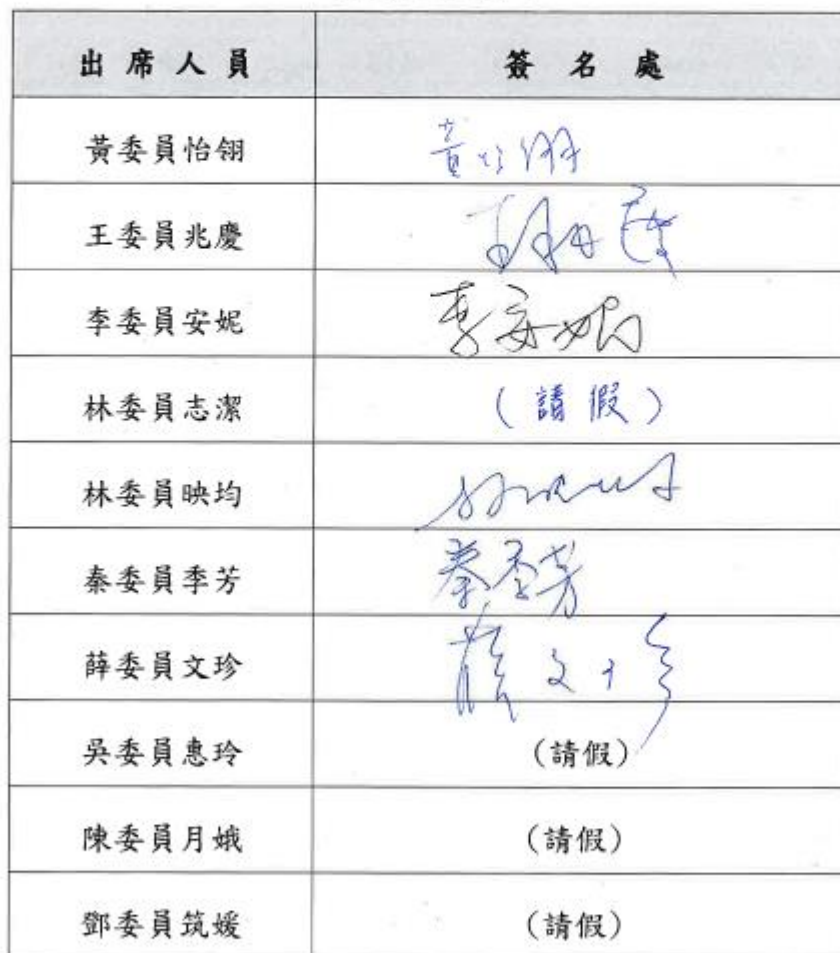 出席人員 簽名處
黃委員怡翎 黃怡翎
王委員兆慶 王兆慶
李委員安妮 李安妮
林委員志潔 (請假)
林委員映均 林映均
秦委員季芳 秦季芳
薛委員文珍 薛文珍
吳委員惠玲 (請假)
陳委員月娥 (請假)
鄧委員筑媛 (請假)